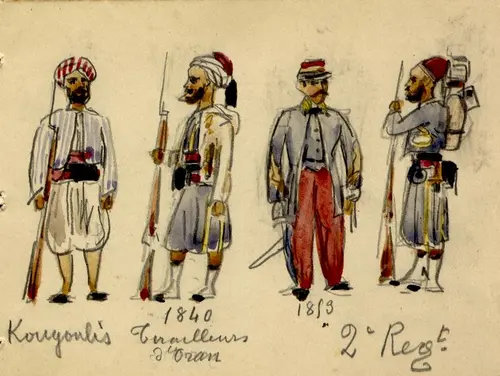 Kougoulis
1840
Tirailleurs
d'Oran
1853
2e Regt.